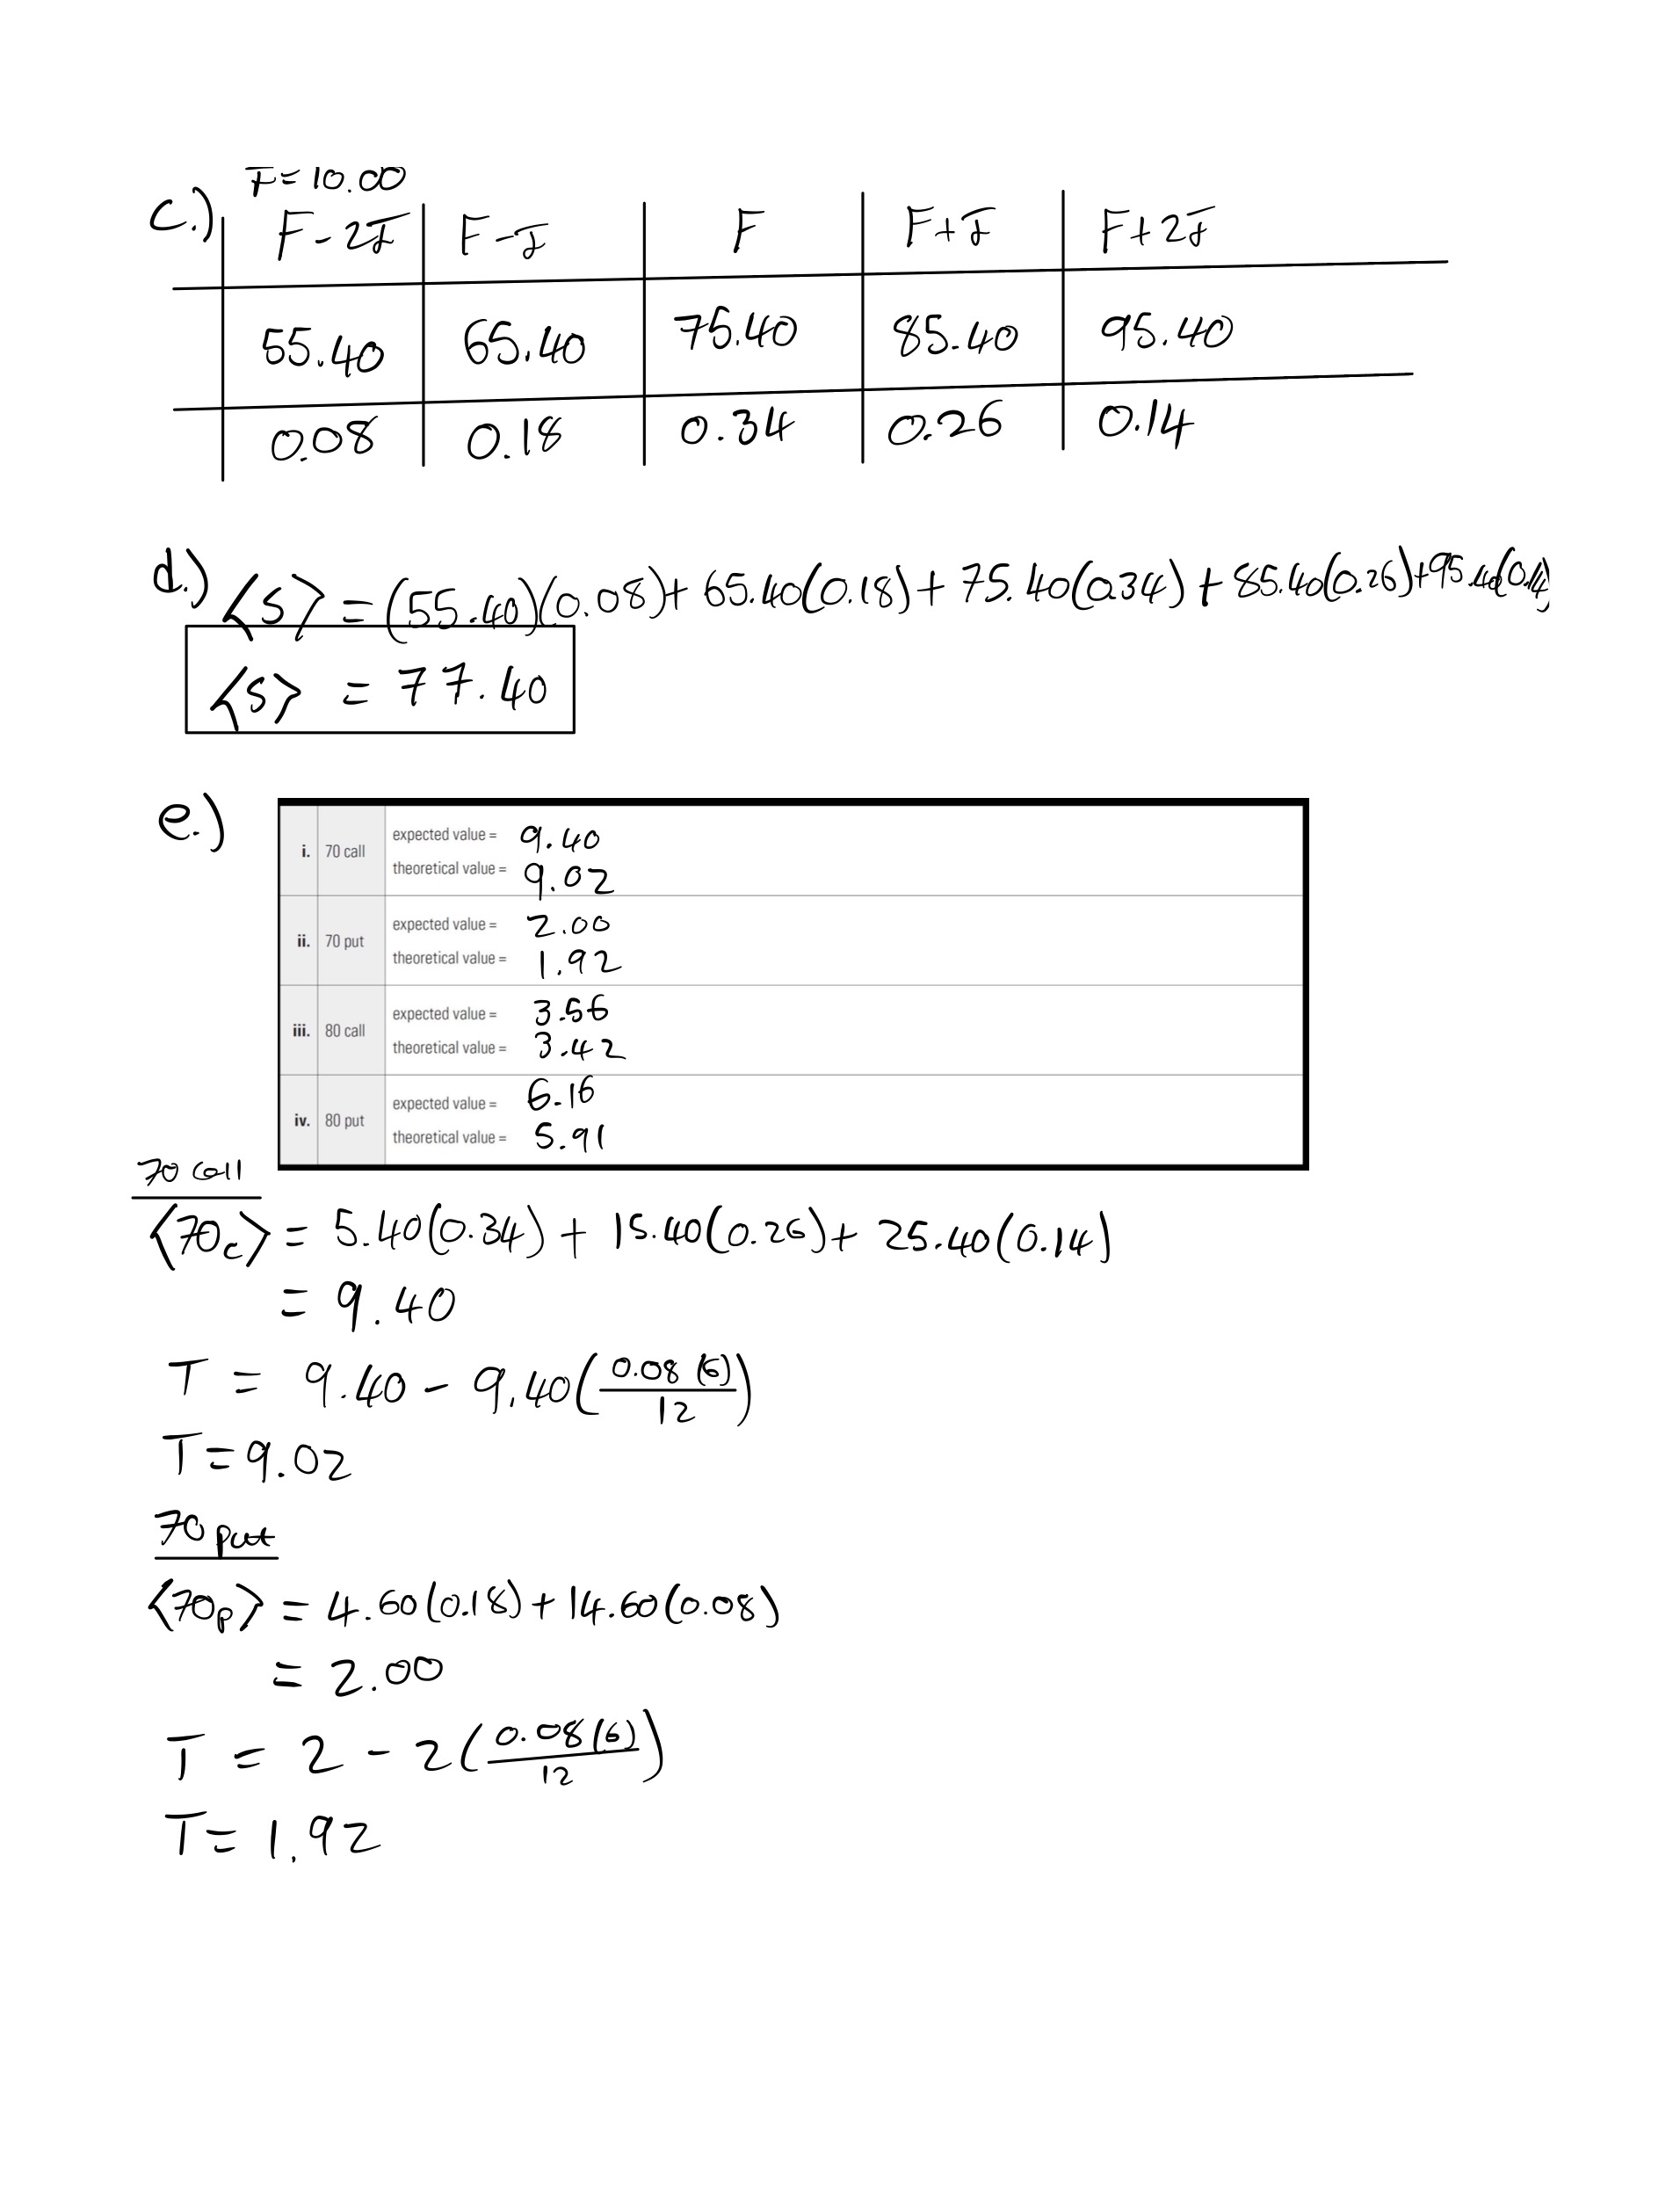 F = 10.00
c.) F-2I F-I F F+I F+2I
55.40 65.40 75.40 85.40 95.40
0.08 0.18 0.34 0.26 0.14
d.) <S> = (55.40)(0.08) + 65.40(0.18) + 75.40(0.34) + 85.40(0.26) + 95.40(0.14)
<S> = 77.40
e.)
i. 70 call expected value = 9.40
theoretical value = 9.02
ii. 70 put expected value = 2.00
theoretical value = 1.92
iii. 80 call expected value = 3.56
theoretical value = 3.42
iv. 80 put expected value = 6.16
theoretical value = 5.91
70 call
<70c> = 5.40(0.34) + 15.40(0.26) + 25.40(0.14)
= 9.40
T = 9.40 - 9.40(0.08(6)/12)
T = 9.02
70 put
<70p> = 4.60(0.18) + 14.60(0.08)
= 2.00
T = 2 - 2(0.08(6)/12)
T = 1.92